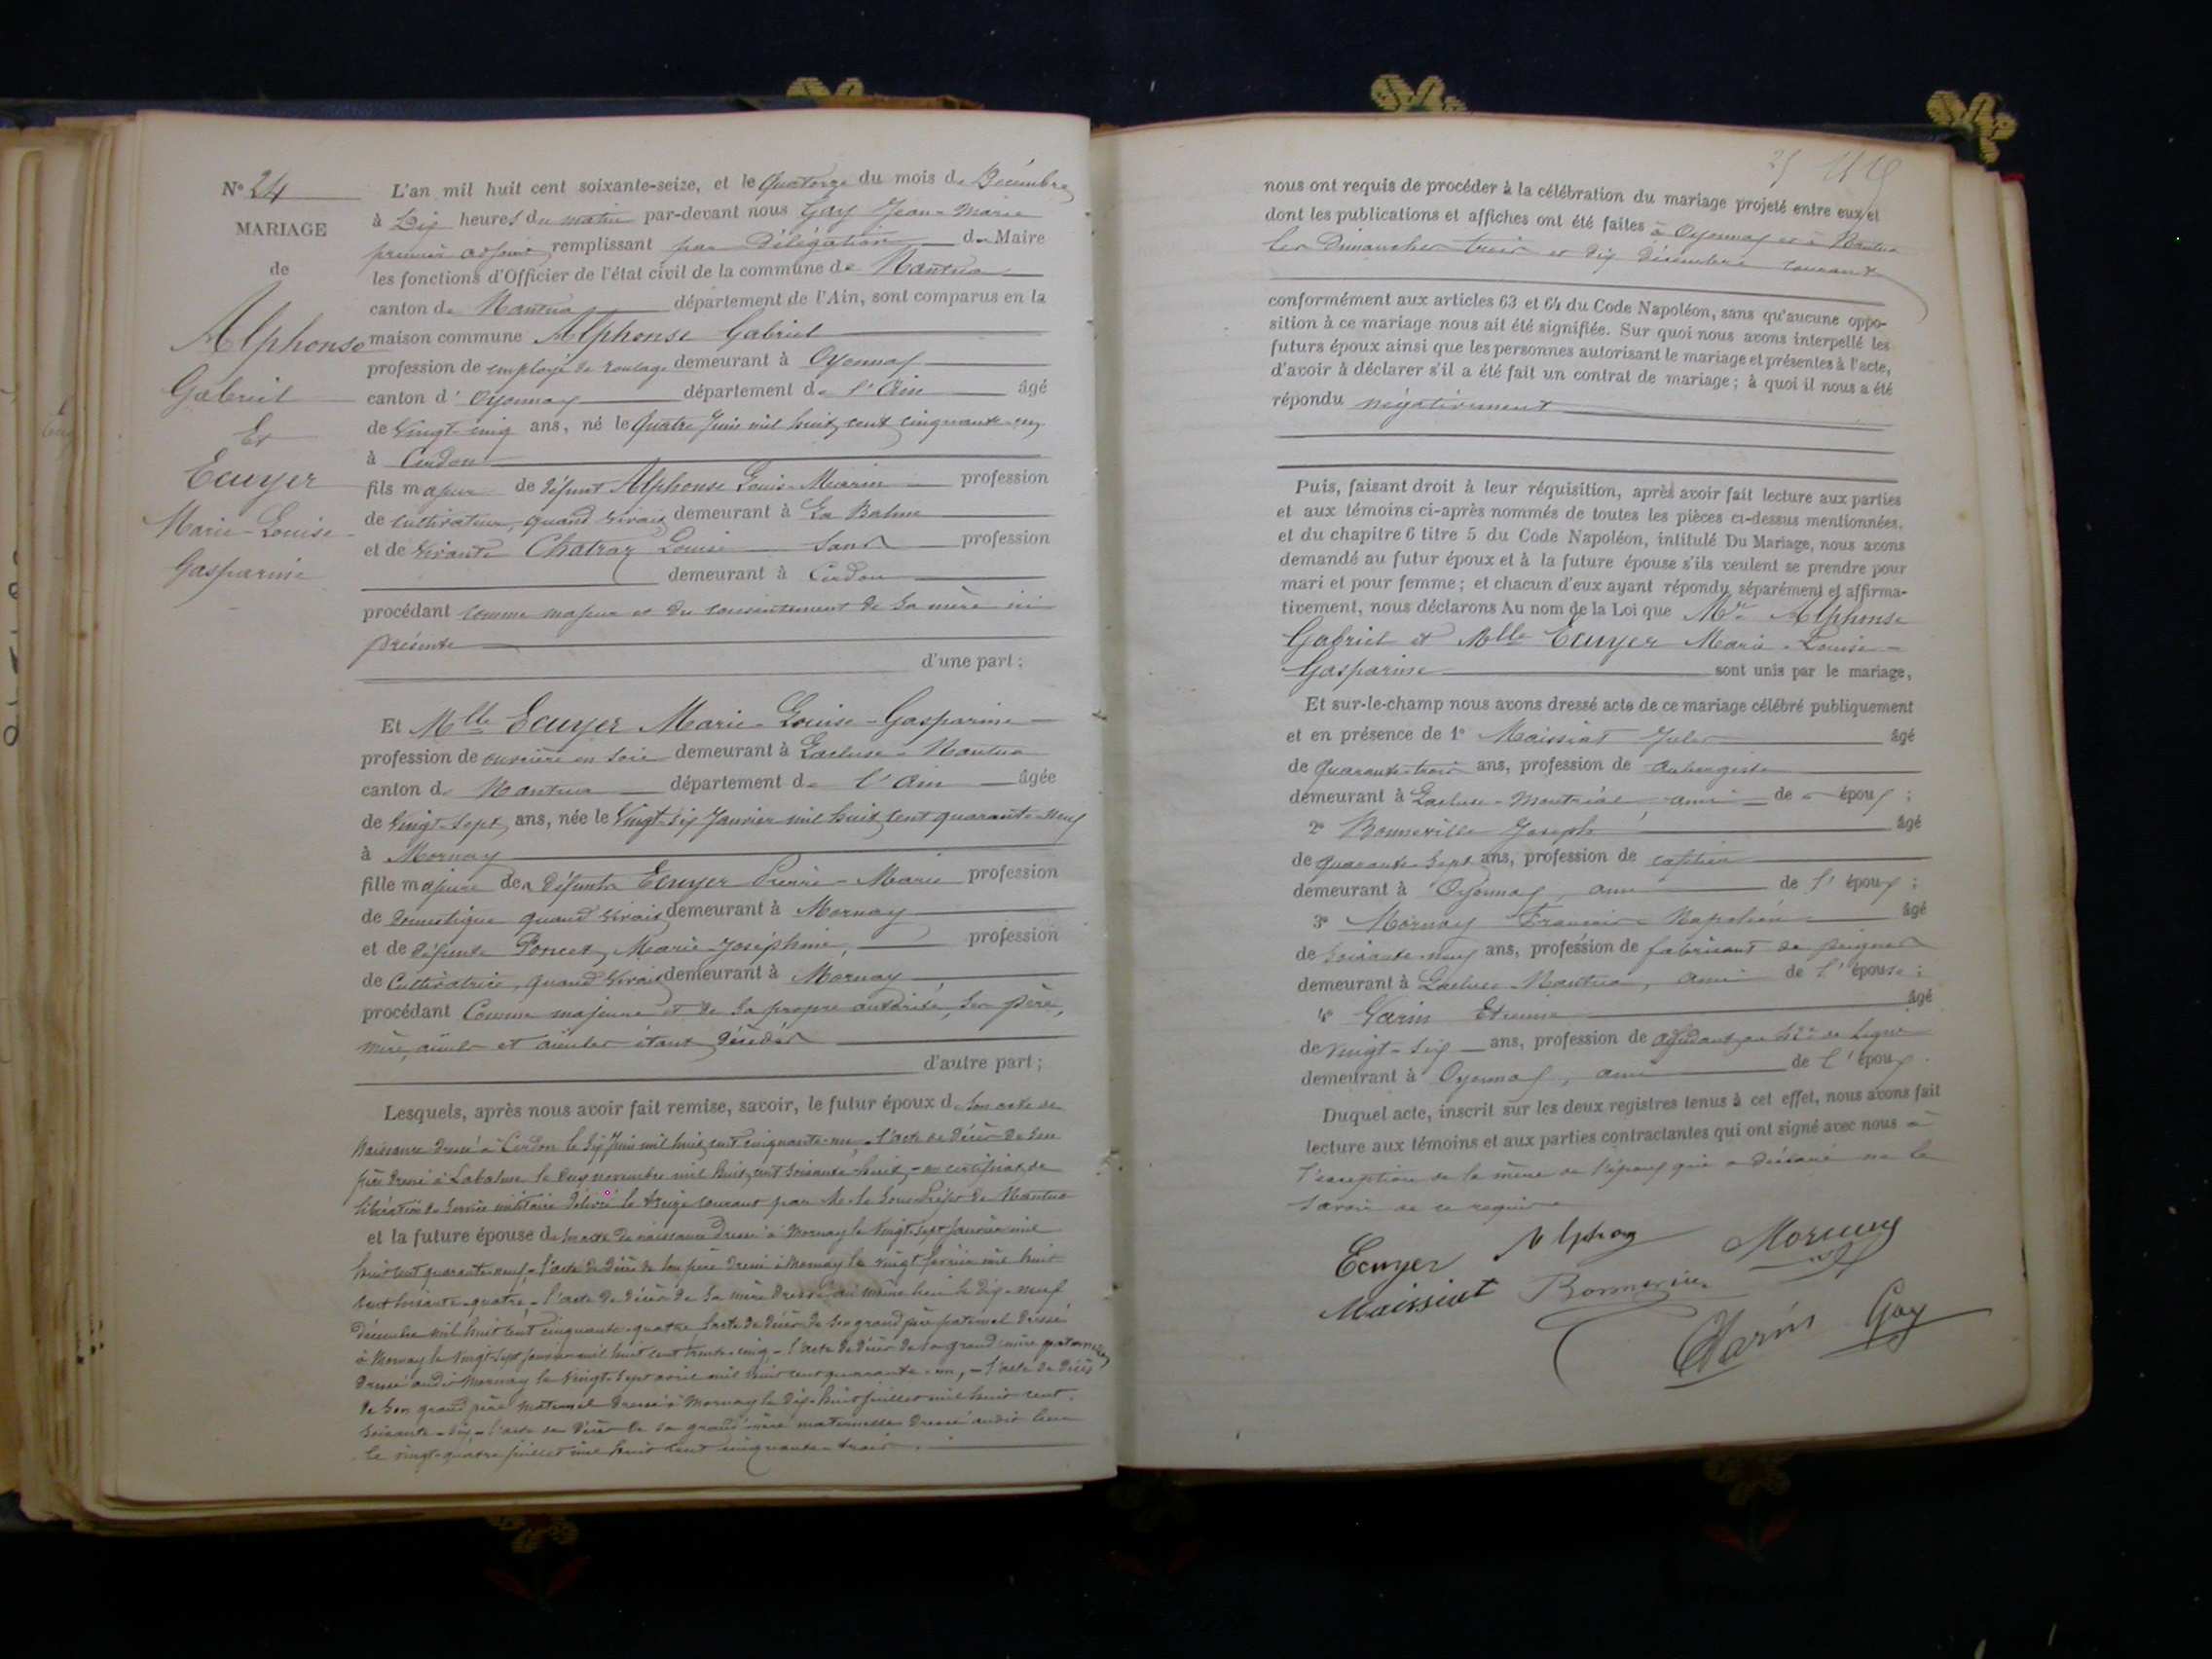 N° 24
MARIAGE
de
Alphonse
Gabriel
Et
Ecuyer
Marie-Louise-
Gasparine
L'an mil huit cent soixante-seize, et le Quatorze du mois de Décembre
à Dix heures du matin par-devant nous Gay Jean-Marie
premier adjoint remplissant par Délégation du Maire
les fonctions d'Officier de l'état civil de la commune de Nantua
canton de Nantua département de l'Ain, sont comparus en la
maison commune Alphonse Gabriel
profession de employé de roulage demeurant à Oyonnax
canton d'Oyonnax département de l'Ain âgé
de vingt-cinq ans, né le Quatre Juin mil huit cent cinquante-un
à Cerdon
fils majeur de défunt Alphonse Louis-Marie profession
de cultivateur, quand vivait demeurant à La Balme
et de vivante Chatraz Louise Sans profession
demeurant à Cerdon
procédant comme majeur et du consentement de sa mère ici
présente
d'une part;
Et Mlle Ecuyer Marie-Louise-Gasparine
profession de ouvrière en soie demeurant à Lacluse-Nantua
canton de Nantua département de l'Ain âgée
de vingt-sept ans, née le Vingt-six Janvier mil huit cent quarante-neuf
à Mornay
fille majeure de défunt Ecuyer Pierre-Marie profession
de domestique quand vivait demeurant à Mornay
et de défunte Poncet, Marie-Joséphine, profession
de Cultivatrice, quand vivait demeurant à Mornay
procédant Comme majeure et de sa propre autorité, ses père,
mère, aïeuls et aïeules étant décédés
d'autre part;
Lesquels, après nous avoir fait remise, savoir, le futur époux de son acte de
naissance dressé à Cerdon le six Juin mil huit cent cinquante-un, - l'acte de décès de son
père dressé à Labalme le onze novembre mil huit cent soixante-huit, - un certificat de
libération du service militaire délivré le treize courant par M. le Sous-Préfet de Nantua
et la future épouse de son acte de naissance dressé à Mornay le vingt-sept janvier mil
huit cent quarante-neuf, - l'acte de décès de son père dressé à Mornay le vingt février mil huit
cent soixante-quatre, - l'acte de décès de sa mère dressé au même lieu le dix-neuf
décembre mil huit cent cinquante-quatre, l'acte de décès de son grand père paternel dressé
à Mornay le vingt-sept janvier mil huit cent trente-cinq, - l'acte de décès de sa grand'mère paternelle
dressé audit Mornay le vingt-sept avril mil huit cent quarante-un, - l'acte de décès
de son grand père maternel dressé à Mornay le dix-huit juillet mil huit cent
soixante-six, - l'acte de décès de sa grand'mère maternelle dressé audit lieu
le vingt-quatre juillet mil huit cent cinquante-trois.
nous ont requis de procéder à la célébration du mariage projeté entre eux et
dont les publications et affiches ont été faites à Oyonnax et à Nantua
les Dimanches trois et dix décembre courant
conformément aux articles 63 et 64 du Code Napoléon, sans qu'aucune oppo-
sition à ce mariage nous ait été signifiée. Sur quoi nous avons interpellé les
futurs époux ainsi que les personnes autorisant le mariage et présentes à l'acte,
d'avoir à déclarer s'il a été fait un contrat de mariage; à quoi il nous a été
répondu négativement
Puis, faisant droit à leur réquisition, après avoir fait lecture aux parties
et aux témoins ci-après nommés de toutes les pièces ci-dessus mentionnées,
et du chapitre 6 titre 5 du Code Napoléon, intitulé Du Mariage, nous avons
demandé au futur époux et à la future épouse s'ils veulent se prendre pour
mari et pour femme; et chacun d'eux ayant répondu séparément et affirma-
tivement, nous déclarons Au nom de la Loi que Mr Alphonse
Gabriel et Mlle Ecuyer Marie-Louise-
Gasparine sont unis par le mariage,
Et sur-le-champ nous avons dressé acte de ce mariage célébré publiquement
et en présence de 1° Maissiat Jules âgé
de Quarante-trois ans, profession de Aubergiste
demeurant à Lacluse-Montréal, ami de époux;
2° Bonneville Joseph âgé
de quarante-sept ans, profession de cafetier
demeurant à Oyonnax, ami de l'époux;
3° Mornay Francois-Napoléon âgé
de soixante-neuf ans, profession de fabricant de peignes
demeurant à Lacluse-Nantua, ami de l'épouse;
4° Varin Etienne âgé
de vingt-six ans, profession de adjudant au de Ligne
demeurant à Oyonnax, ami de l'époux.
Duquel acte, inscrit sur les deux registres tenus à cet effet, nous avons fait
lecture aux témoins et aux parties contractantes qui ont signé avec nous à
l'exception de la mère de l'époux qui a déclaré ne le
savoir de ce requise
Ecuyer Alphonse Mornay
Maissiat Bonneville
Varin Gay